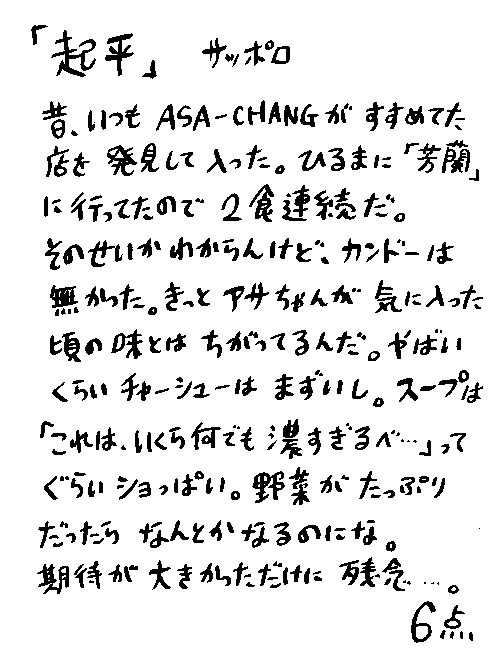 「起平」 サッポロ
昔、いつも ASA-CHANGが すすめてた
店を 発見して 入った。ひるまに「芳蘭」
に行ってたので 2食連続だ。
そのせいか わからんけど、カンドーは
無かった。きっと アサちゃんが 気に入った
頃の味とは ちがってるんだ。やばい
くらい チャーシューは まずいし。スープは
「これは、いくら何でも 濃すぎるべ…」って
ぐらい ショっぱい。野菜が たっぷり
だったら なんとかなるのにな。
期待が 大きかっただけに 残念…。
6点